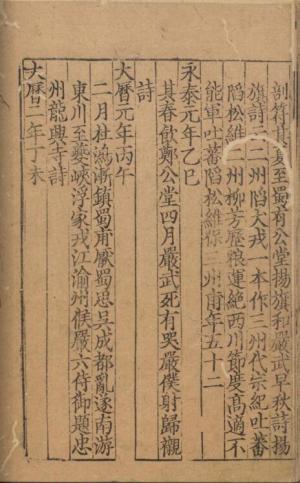 剖符其夏至蜀有公堂揚旗和嚴武早秋詩揚
旗詩云二州陷犬戎一本作三州代宗紀吐蕃
陷松維二州柳芳歷粮運絕西川節度高適不
能軍吐蕃陷松維保三州甫年五十二
永泰元年乙巳
其春飲鄭公堂四月嚴武死有哭嚴僕射歸櫬
詩
大曆元年丙午
二月杜鴻漸鎮蜀甫厭蜀思吳成都亂遂南游
東川至夔峽浮家戎江渝州候嚴六侍御題忠
州龍興寺詩
大曆二年丁未